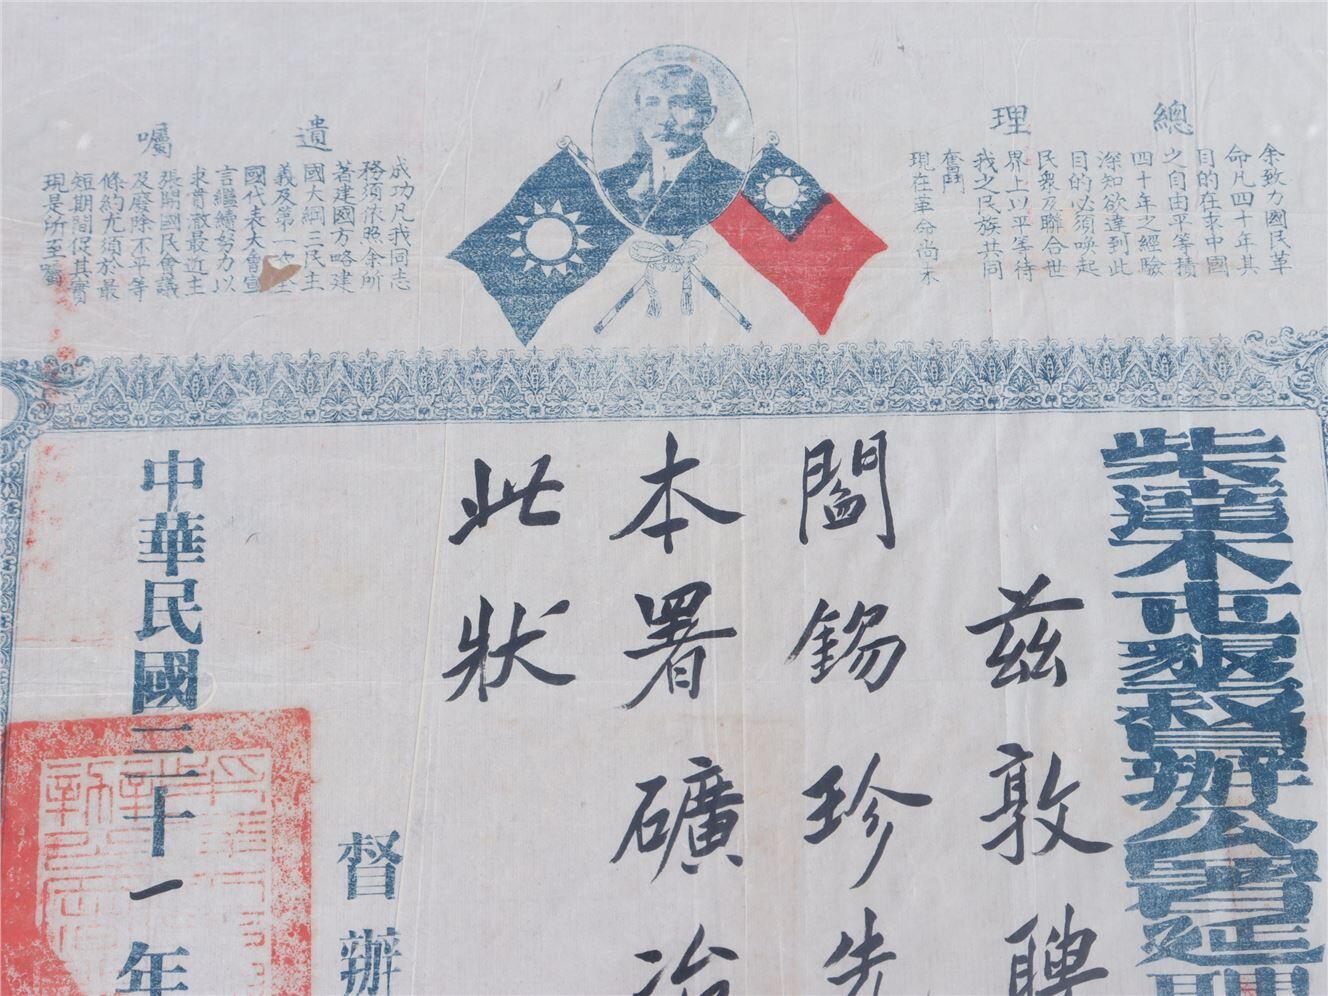 總理遺囑
余致力國民革
命凡四十年其
目的在求中國
之自由平等積
四十年之經驗
深知欲達到此
目的必須喚起
民衆及聯合世
界上以平等待
我之民族共同
奮鬥
現在革命尚未
成功凡我同志
務須依照余所
著建國方略建
國大綱三民主
義及第一次全
國代表大會宣
言繼續努力以
求貫澈最近主
張開國民會議
及廢除不平等
條約尤須於最
短期間促其實
現是所至囑
柴達木屯墾督辦公署延聘
茲敦聘
閻錫珍先
本署礦冶
此狀
督辦
中華民國三十一年